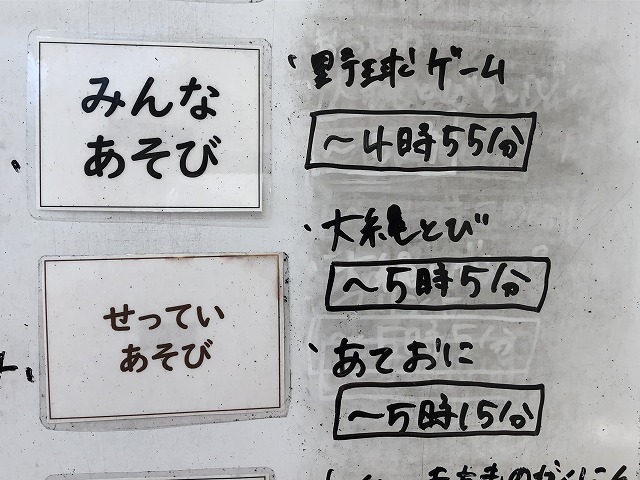 みんな
あそび
・野球ゲーム
~4時55分
・大縄とび
~5時5分
せってい
あそび
・あておに
~5時15分